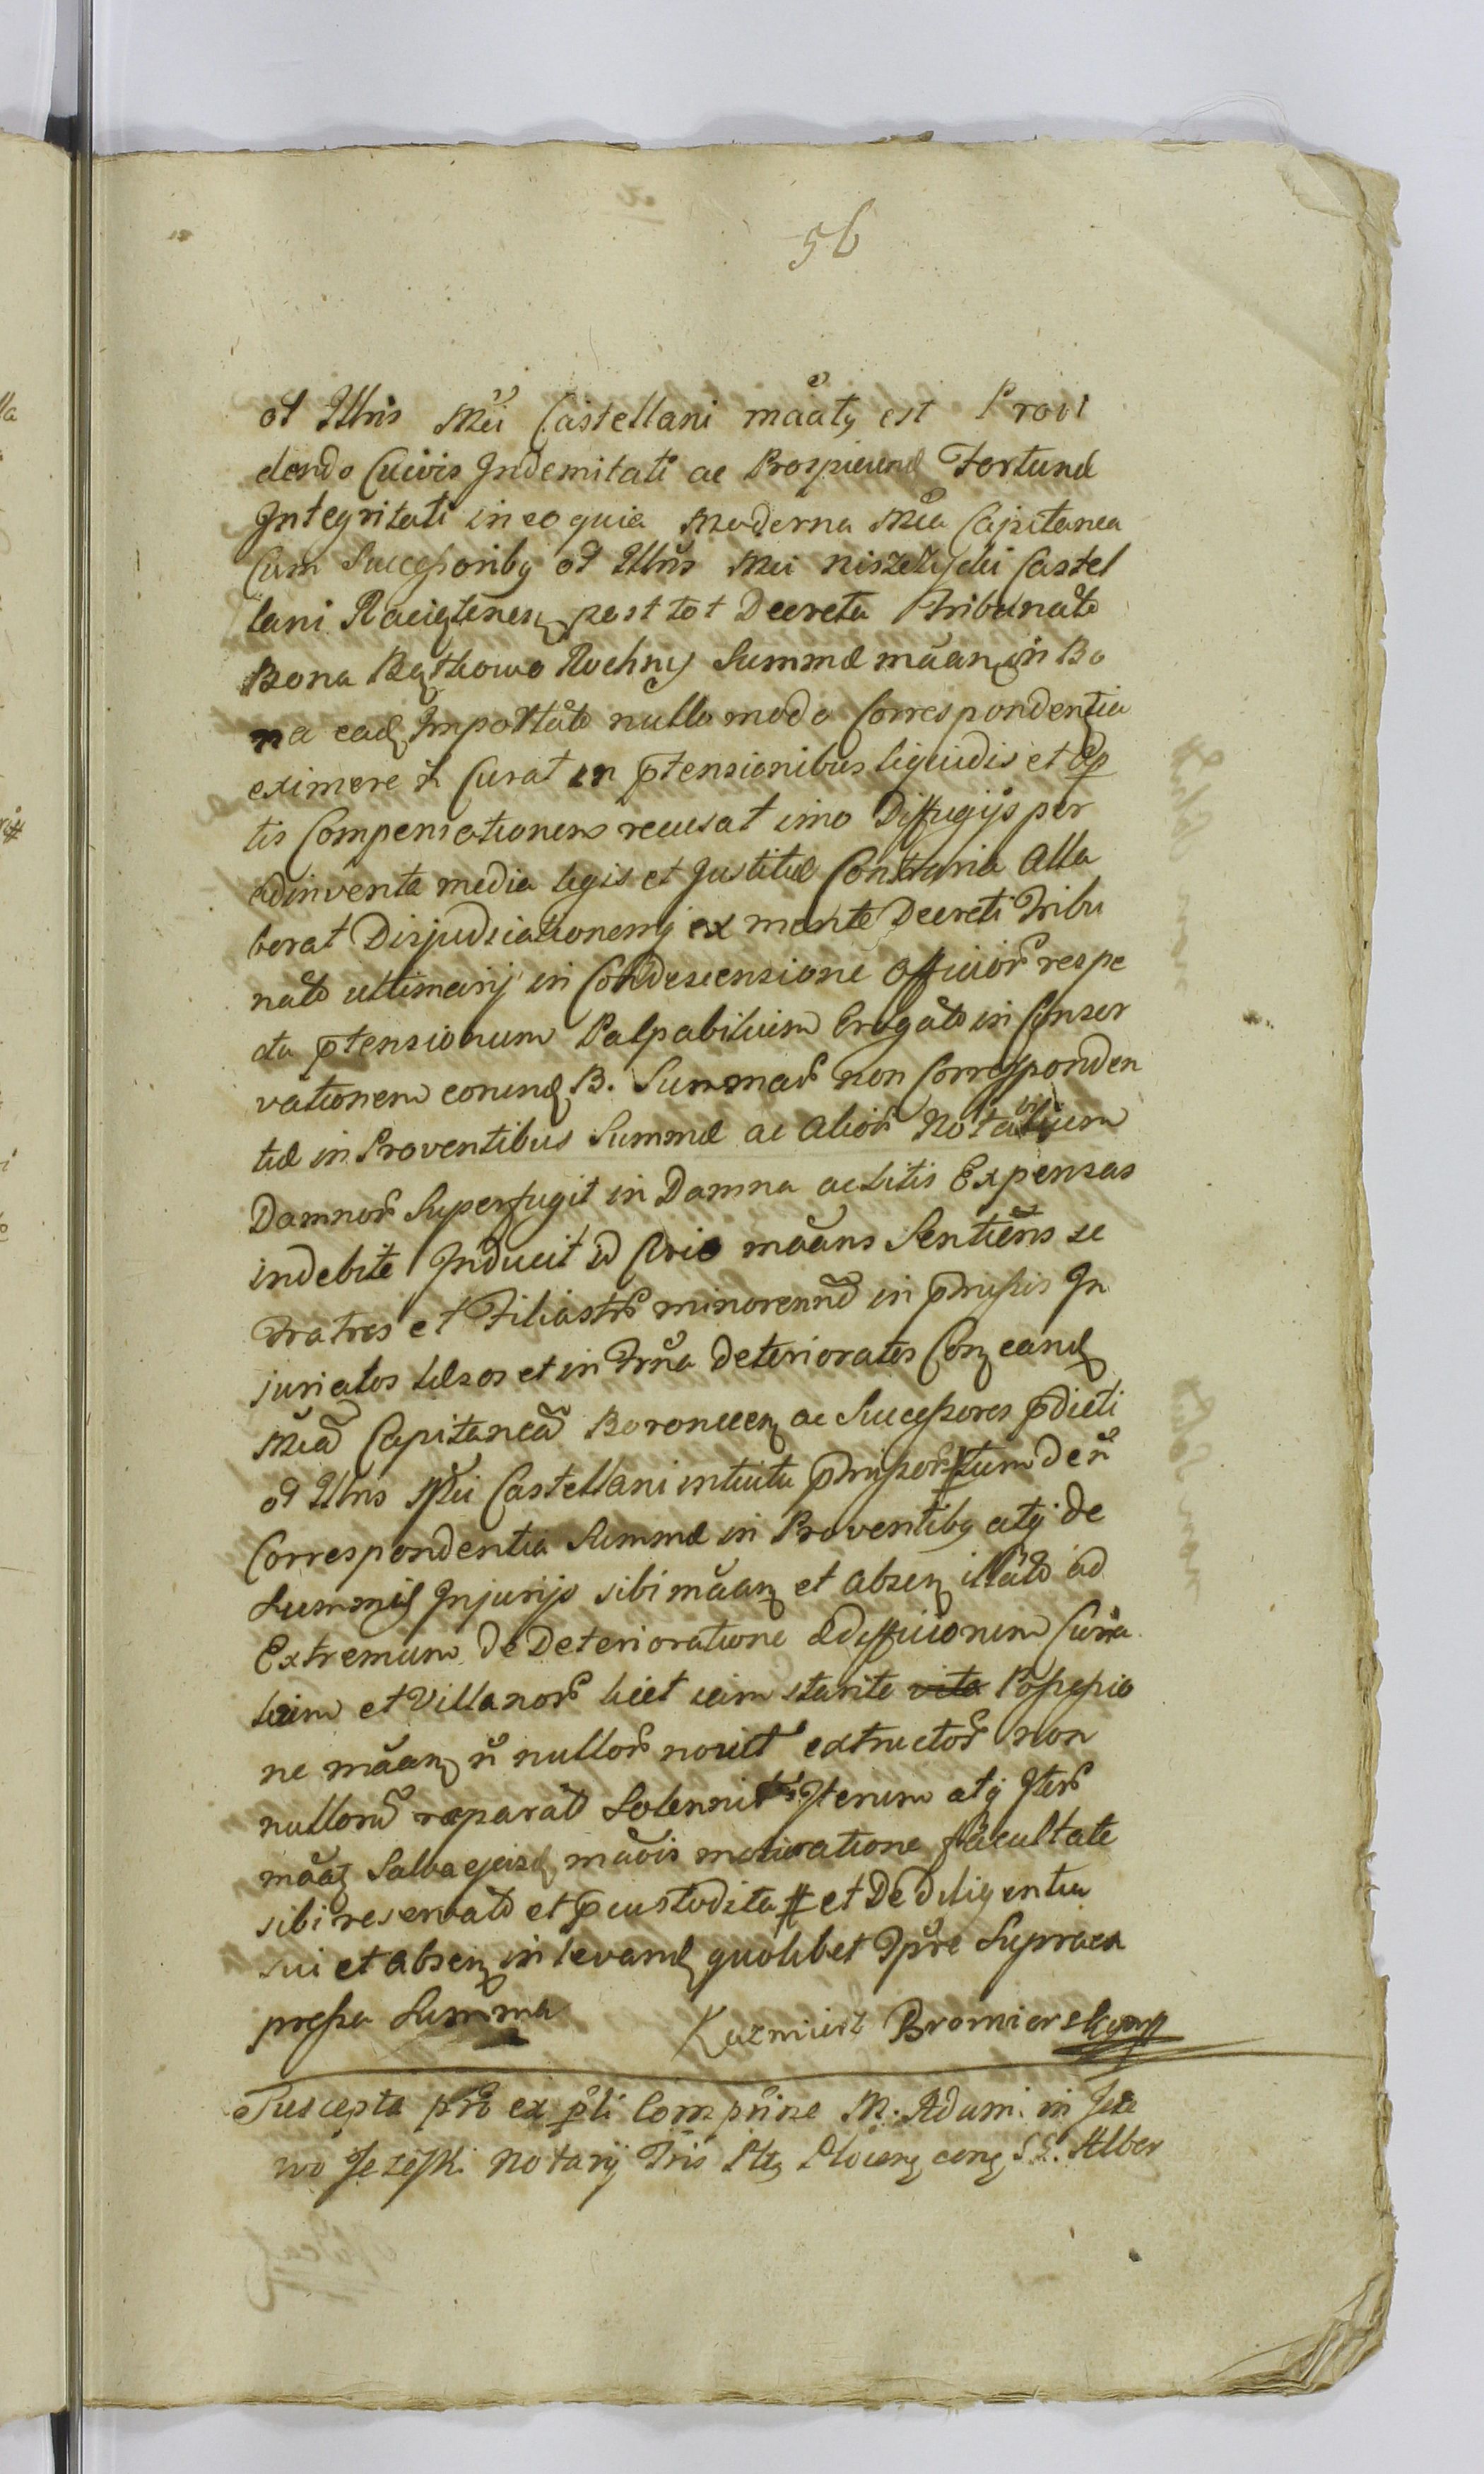 56
ol Illris Mci Castellani maatq est Provi
dendo Cuivis Indemitati ac Prospiciend Fortunæ
Integritati in eo quia Moderna Mca Capitanea
Cum Successoribq ol Illris Mci Niszczycki Castel
lani Raciązenesq post tot Decreta Tribunat
Bona Bątkowo Rochny Summæ maanq in Bo
na eadq Importat nullo modo Correspondentia
eximere n Curat in ptensionibus liquidis et Ap
tis Compensationem recusat imo Diffugijs per
adinventa media legis et Justitiæ Contraria Alla
borat Disjudiciationemq ex mente Decreti Tribu
nat ultimarij in Condescensione officior respe
ctu ptensionum Palpabilium Erogat in Conser
vationem eorundq B. Summar non Corresponden
tiæ in Proventibus Summæ ac Alior Notabilium
Damnor Superfugit in Damna ac Litis Expensas
indebite Inducit id Circo maans Sentiens se
Fratres et Filiastr minorenn in pmissis In
juriatos Læsos et in Frna deteriorates Conq eandq
Mcam Capitaneam Boroneenq ac Successores pdicti
ol Illris Mci Castellani intuitu pmissor tum de n
Correspondentia Summæ in Proventibq atq de
Summis Injurijs sibi maanq et absenq illat ad
Extremum de Deterioratione ædifficionum Curia
lium et Villanor licet cum stante Possessio
ne maanq n nullor novit extructor non
nullorum reparat Solennit Iterum atq Iter
maatq Salva ejusdq maois motivatione facultate
sibi reservat et pcustodita # et De diligentia
sui et absenq in levandq quolibet Ipre Supraex
pressa Summa Kazmierz Bromierskymp
Suscepta pns ex pli Comprine M. Adami in Jeże
wo Jeżeski Notarij Tris Pltq Plocenq conq SS. Alber